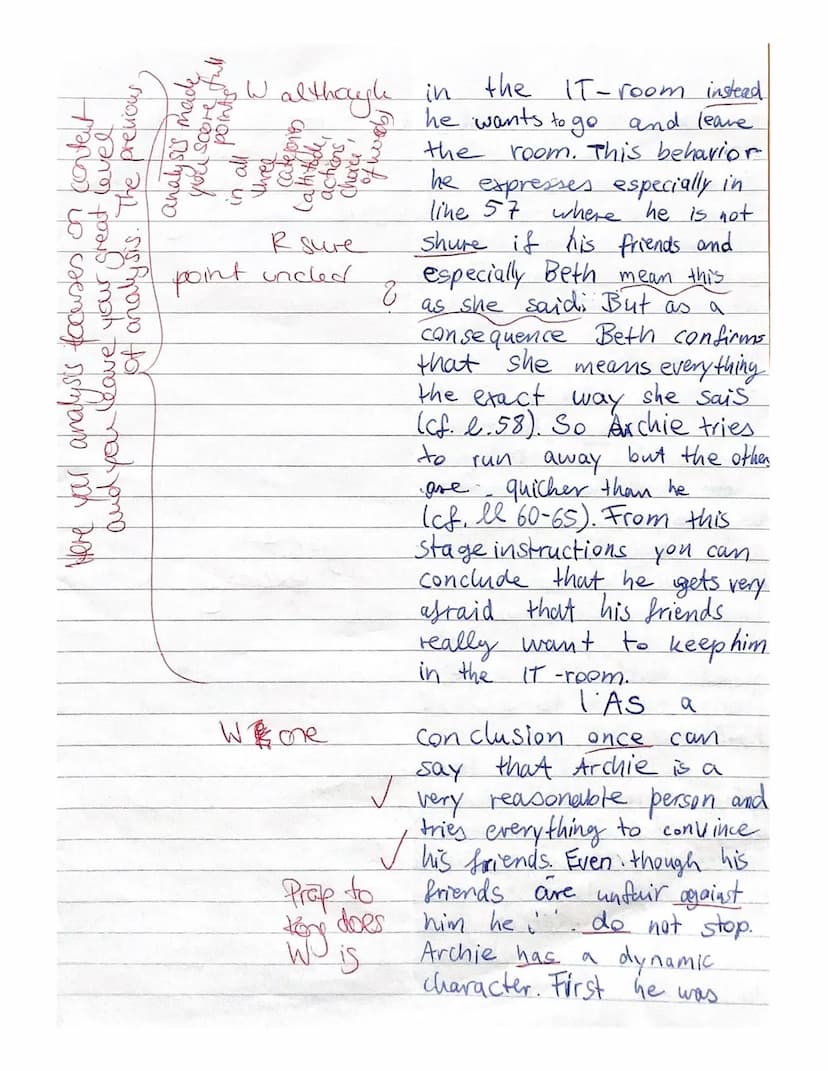 in the IT-room instead
he wants to go and leave
the room. This behavior
he expresses especially in
line 57 where he is not
shure if his friends and
especially Beth mean this
as she said. But as a
consequence Beth confirms
that she means everything
the exact way she sais
(cf. l. 58). So Archie tries
to run away but the other
are quicher than he
(cf. ll 60-65). From this
stage instructions you can
conclude that he gets very
afraid that his friends
really want to keep him
in the IT-room.
As a
conclusion once can
say that Archie is a
very reasonable person and
tries everything to convince
his friends. Even though his
friends are unfair against
him he do not stop.
Archie has a dynamic
character. First he was
W although
R sure
point uncled
?
W one
Prap to
does
W is
Here your analysis focuses on content
and you leave your great level
of analysis. The previous
analysis made
you score full
points
in all
three
categories
(attitude,
actions,
choice
of words)